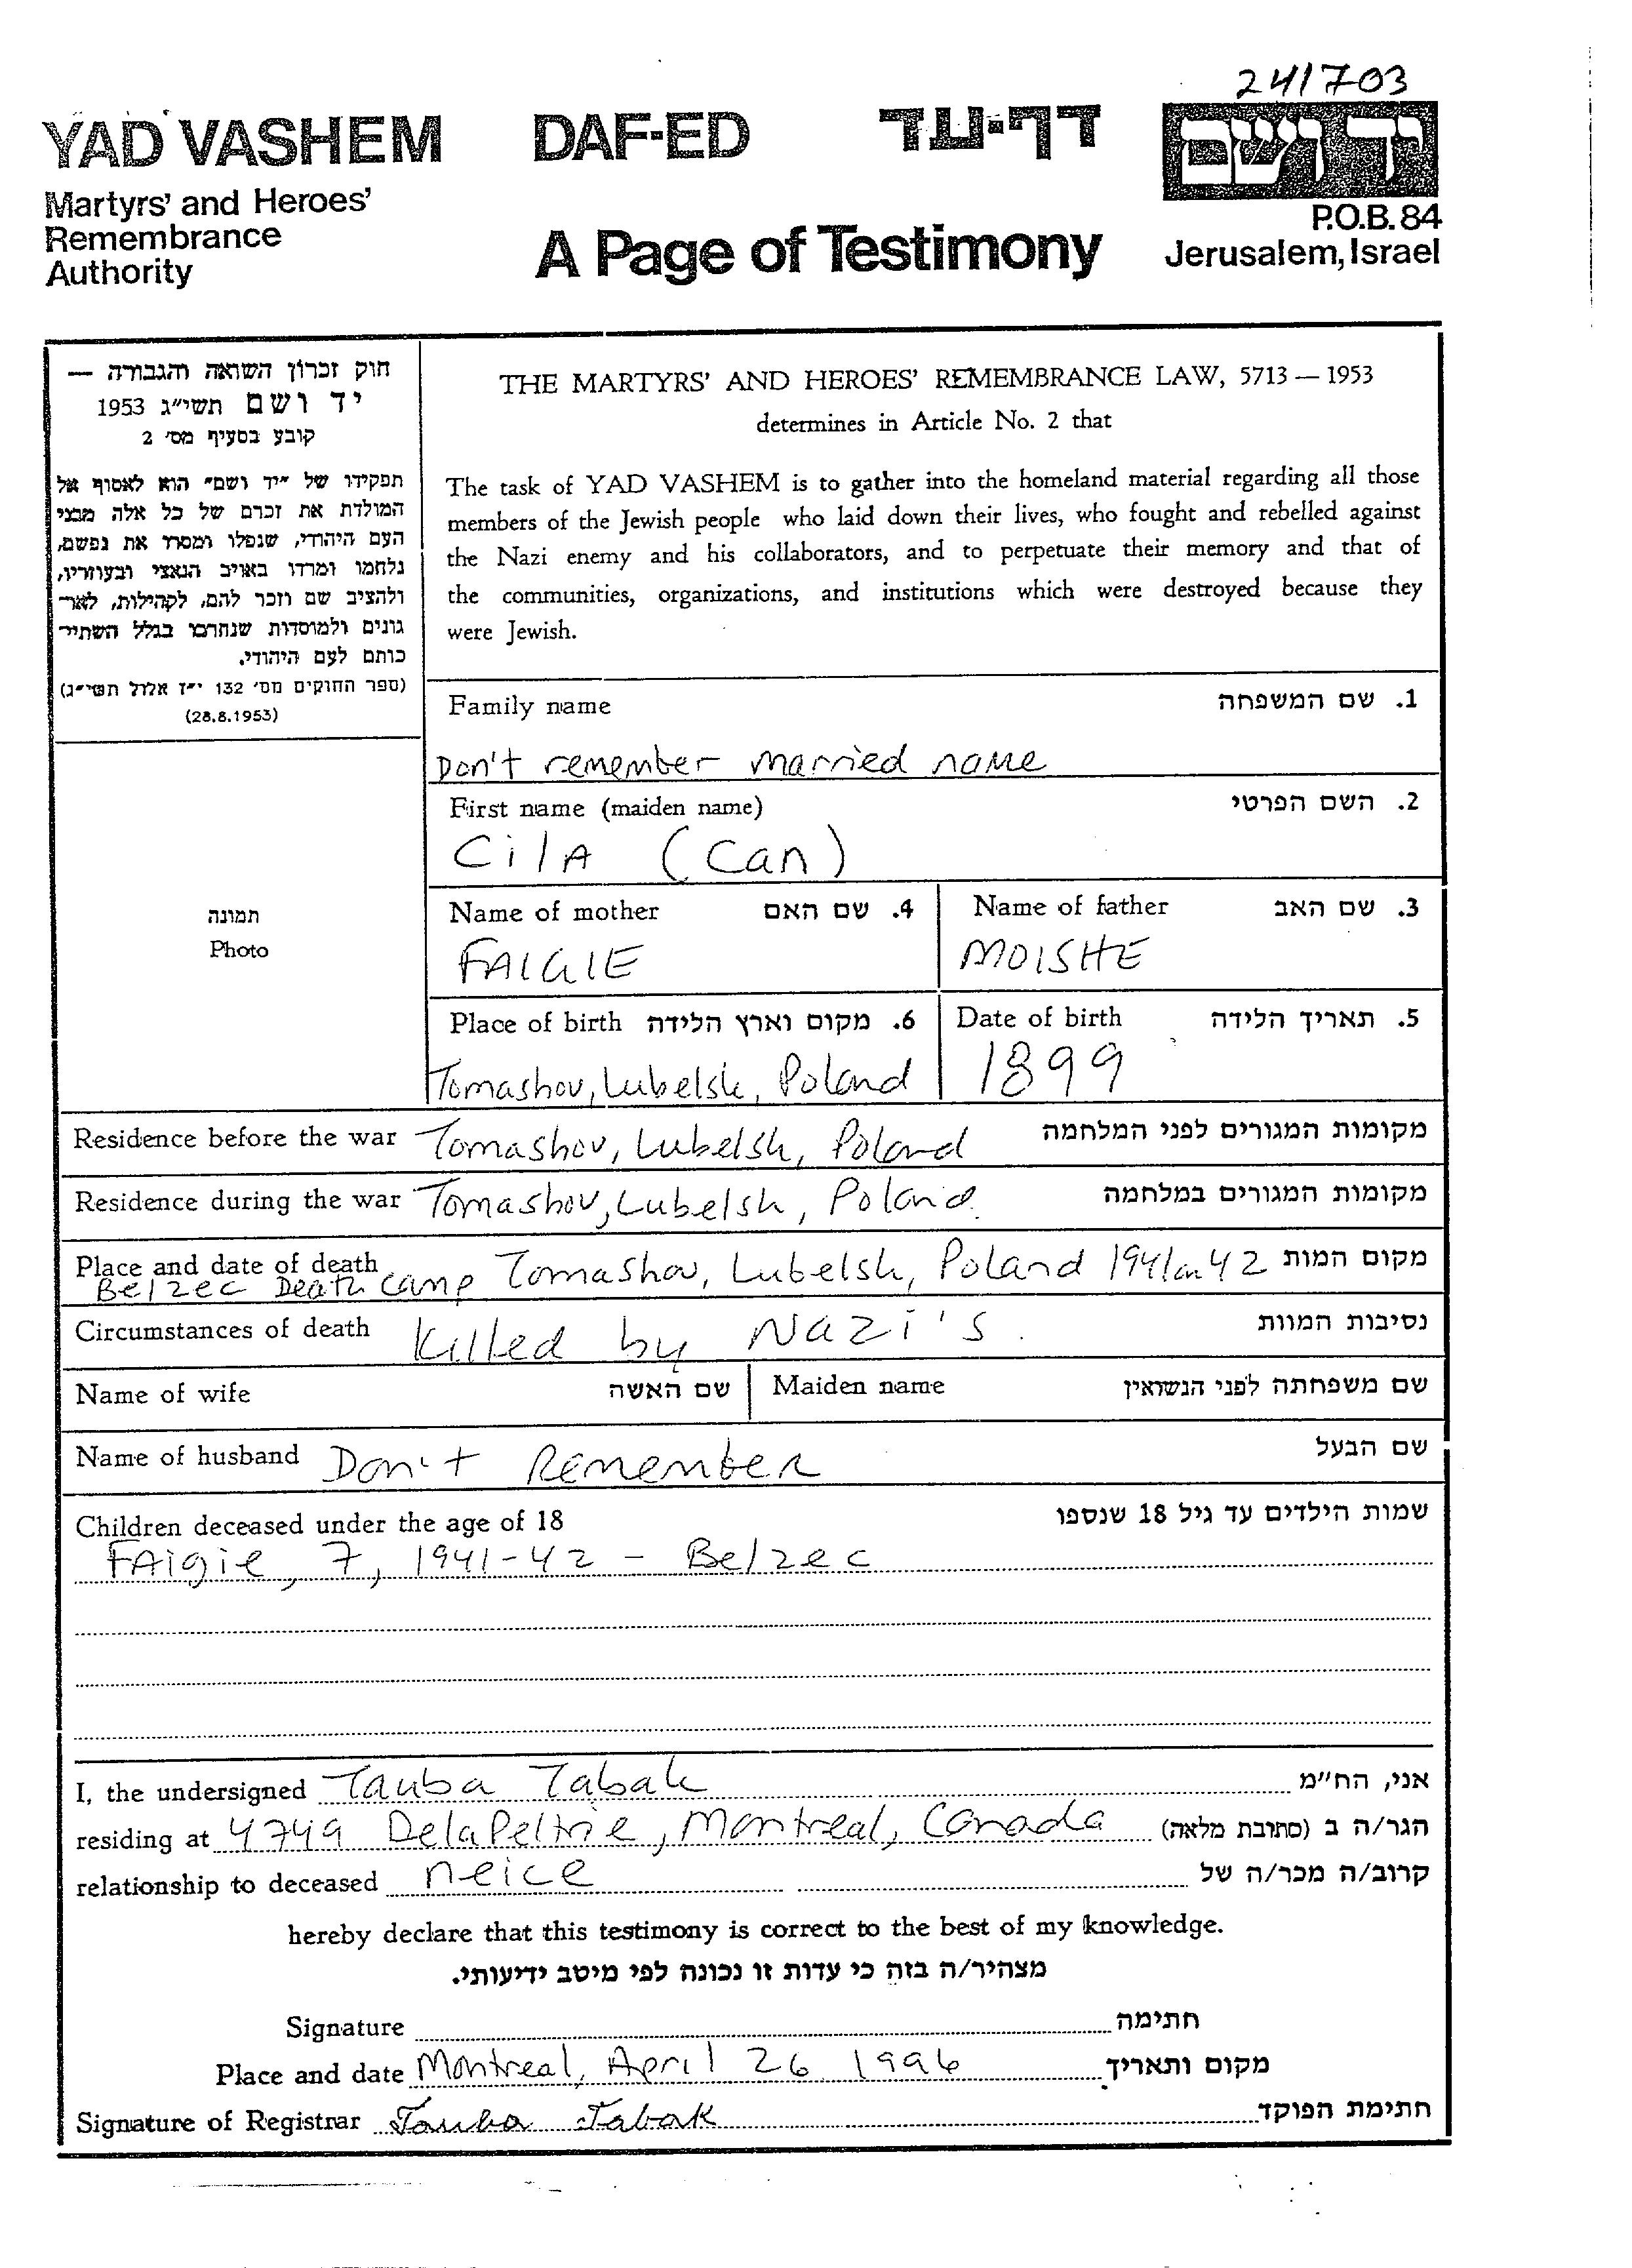 241703
YAD VASHEM DAF-ED דף-עד יד ושם
Martyrs' and Heroes'
Remembrance
Authority
A Page of Testimony
P.O.B. 84
Jerusalem, Israel
חוק זכרון השואה והגבורה —
יד ושם תשי״ג 1953
קובע בסעיף מס׳ 2
תפקידו של ״יד ושם״ הוא לאסוף אל
המולדת את זכרם של כל אלה מבני
העם היהודי, שנפלו ומסרו את נפשם,
נלחמו ומרדו באויב הנאצי ובעוזריו,
ולהציב שם וזכר להם, לקהילות, לאר־
גונים ולמוסדות שנחרבו בגלל השתיי־
כותם לעם היהודי.
(ספר החוקים מס׳ 132 י״ז אלול תשי״ג)
(28.8.1953)
THE MARTYRS' AND HEROES' REMEMBRANCE LAW, 5713 — 1953
determines in Article No. 2 that
The task of YAD VASHEM is to gather into the homeland material regarding all those
members of the Jewish people who laid down their lives, who fought and rebelled against
the Nazi enemy and his collaborators, and to perpetuate their memory and that of
the communities, organizations, and institutions which were destroyed because they
were Jewish.
Family name 1. שם המשפחה
Don't remember married name
First name (maiden name) 2. השם הפרטי
CilA (Can)
תמונה
Photo
Name of mother 4. שם האם Name of father 3. שם האב
FAIGIE MOISHE
Place of birth 6. מקום וארץ הלידה Date of birth 5. תאריך הלידה
Tomashov, Lubelsk, Poland 1899
Residence before the war Tomashov, Lubelsk, Poland מקומות המגורים לפני המלחמה
Residence during the war Tomashov, Lubelsk, Poland מקומות המגורים במלחמה
Place and date of death Tomashov, Lubelsk, Poland 1941 or 42 מקום המות
Belzec Death Camp
Circumstances of death Killed by Nazi's. נסיבות המוות
Name of wife שם האשה Maiden name שם משפחתה לפני הנשואין
Name of husband Don't Remember שם הבעל
Children deceased under the age of 18 שמות הילדים עד גיל 18 שנספו
FAigie, 7, 1941-42 - Belzec
I, the undersigned Tauba Tabak אני, הח״מ
residing at 4749 De la Peltrie, Montreal, Canada הגר/ה ב (כתובת מלאה)
relationship to deceased neice קרוב/ה מכר/ה של
hereby declare that this testimony is correct to the best of my knowledge.
מצהיר/ה בזה כי עדות זו נכונה לפי מיטב ידיעותי.
Signature חתימה
Place and date Montreal, April 26 1996 מקום ותאריך
Signature of Registrar Tauba Tabak חתימת הפוקד